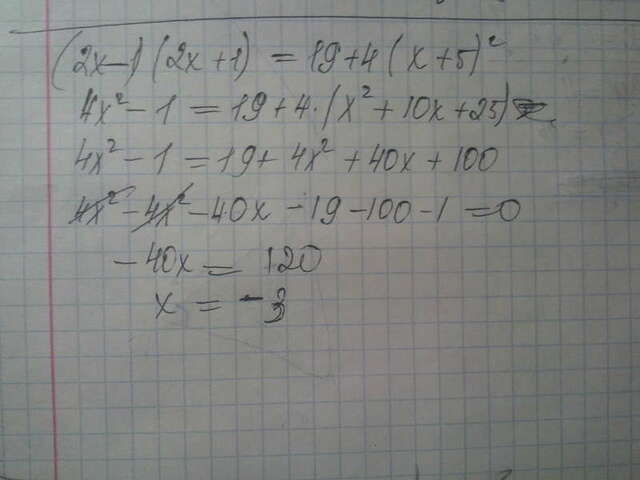 (2x-1)(2x+1) = 19+4(x+5)²
4x²-1 = 19+4·(x²+10x+25)
4x²-1 = 19+4x²+40x+100
4x²-4x²-40x-19-100-1=0
-40x = 120
x = -3